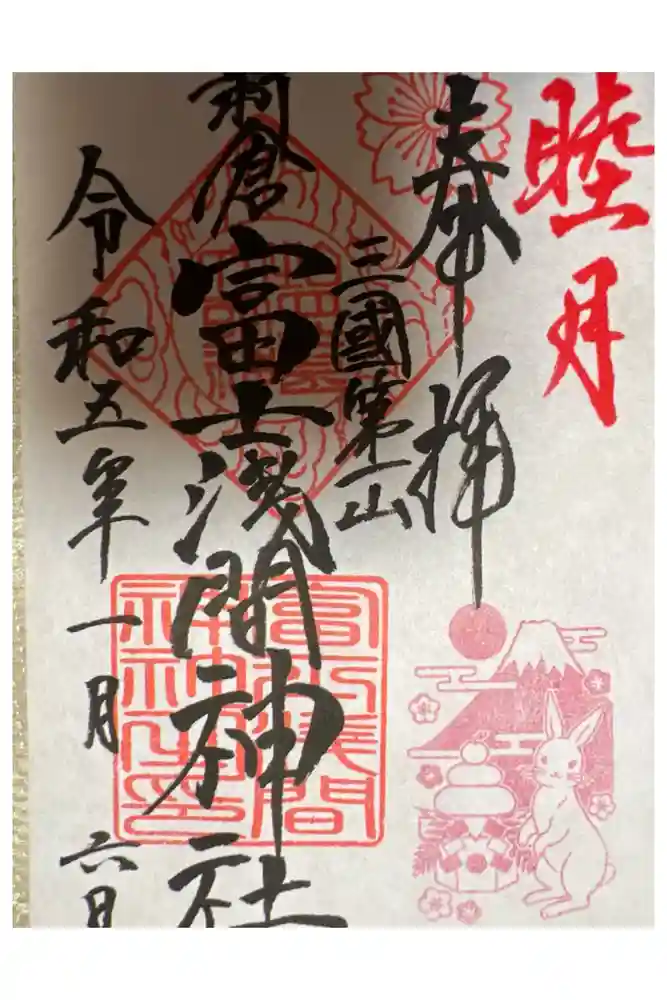 睦月
奉拝
三國第一山
羽倉 富士浅間神社
令和五年一月六日
富士浅間
神社之印